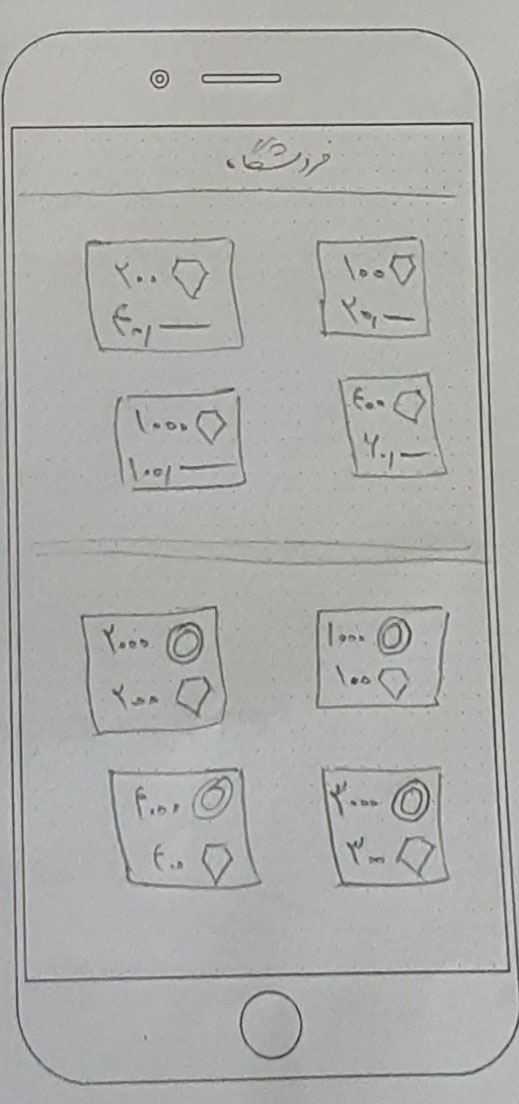 فروشگاه
۱۰۰
۲۰,—
۲۰۰
۴۰,—
۴۰۰
۱۰۰۰
۱۰۰,—
۱۰۰۰
۱۰۰
۲۰۰۰
۲۰۰
۳۰۰۰
۳۰۰
۴۰۰۰
۴۰۰